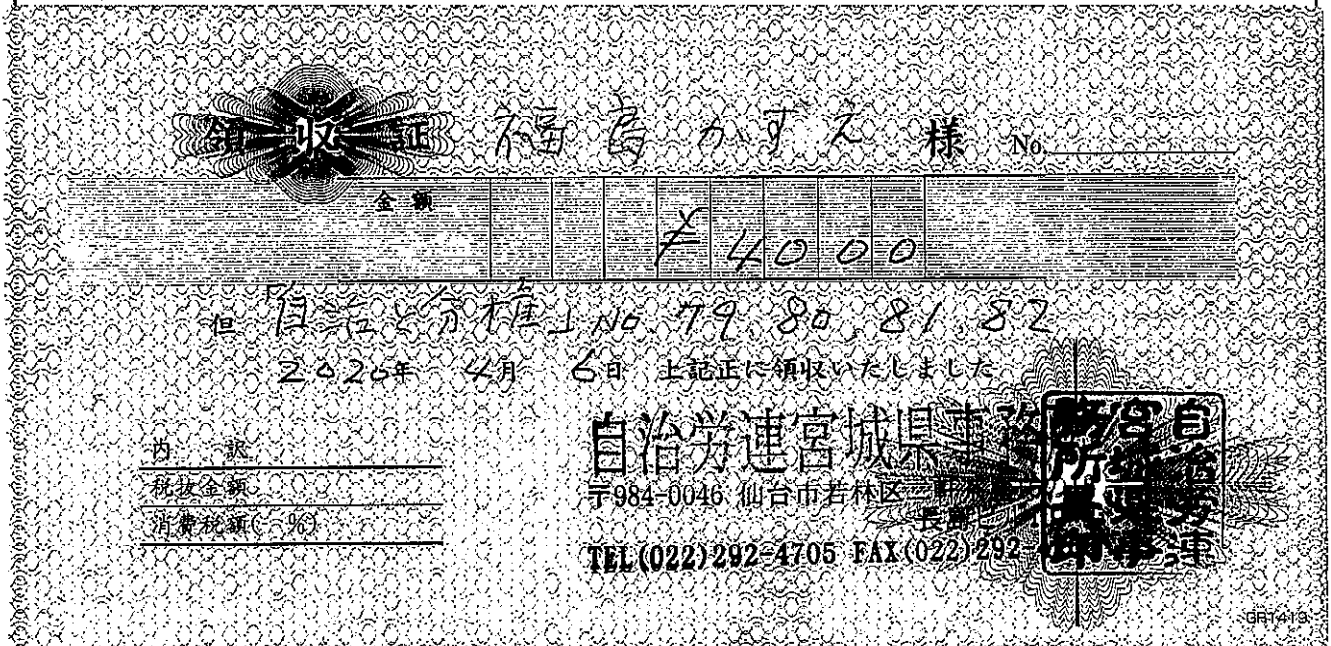 領収証 福島かずえ 様 No.
金額
¥4000
但 「自治と分権」No.79.80.81.82
2020年 4月 6日 上記正に領収いたしました
内 訳
税抜金額
消費税額( %)
自治労連宮城県事務
〒984-0046 仙台市若林区二軒
TEL(022)292-4705 FAX(022)292-
自治労連
宮城県事
務所
GR1413